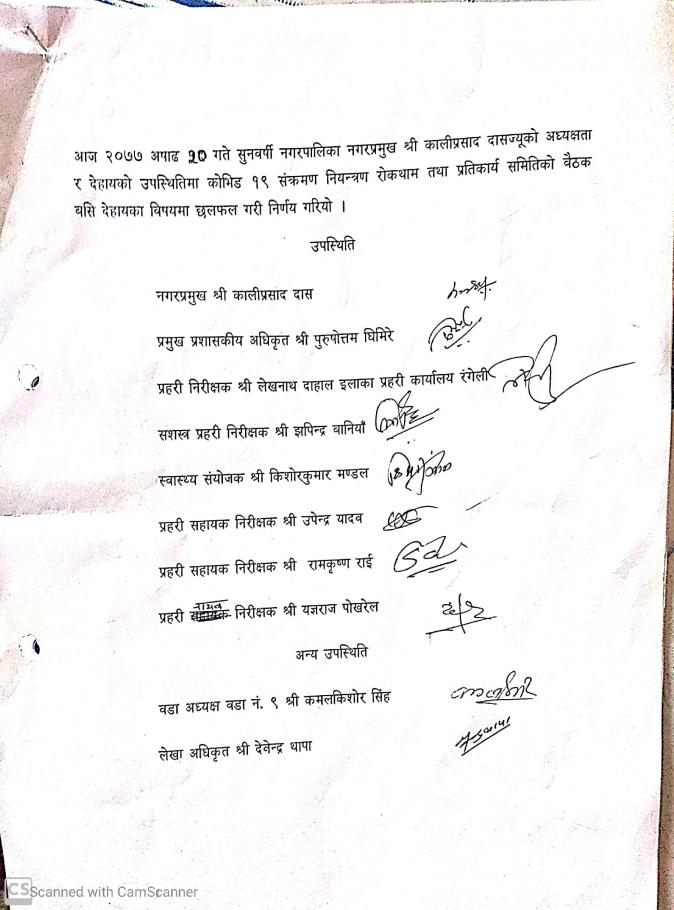 आज २०७७ अषाढ २० गते सुनवर्षी नगरपालिका नगरप्रमुख श्री कालीप्रसाद दासज्यूको अध्यक्षता
र देहायको उपस्थितिमा कोभिड १९ संक्रमण नियन्त्रण रोकथाम तथा प्रतिकार्य समितिको बैठक
बसि देहायका विषयमा छलफल गरी निर्णय गरियो ।
उपस्थिति
नगरप्रमुख श्री कालीप्रसाद दास
प्रमुख प्रशासकीय अधिकृत श्री पुरुषोत्तम घिमिरे
प्रहरी निरीक्षक श्री लेखनाथ दाहाल इलाका प्रहरी कार्यालय रंगेली
सशस्त्र प्रहरी निरीक्षक श्री झपिन्द्र बानियाँ
स्वास्थ्य संयोजक श्री किशोरकुमार मण्डल
प्रहरी सहायक निरीक्षक श्री उपेन्द्र यादव
प्रहरी सहायक निरीक्षक श्री रामकृष्ण राई
प्रहरी नायव सहायक निरीक्षक श्री यज्ञराज पोखरेल
अन्य उपस्थिति
वडा अध्यक्ष वडा नं. ९ श्री कमलकिशोर सिंह
लेखा अधिकृत श्री देनेन्द्र थापा
CS Scanned with CamScanner